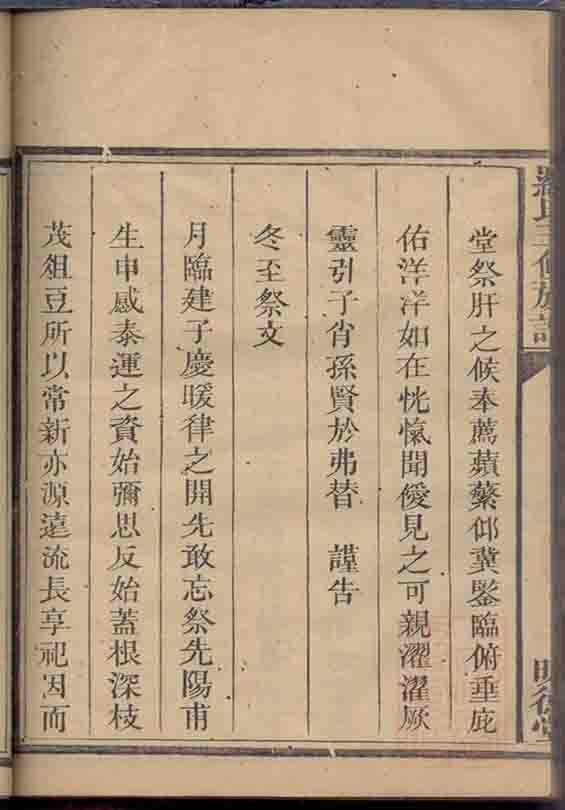 堂祭肝之候奉薦蘋蘩仰冀鑒臨俯垂庇
佑洋洋如在恍愾聞僾見之可親濯濯厥
靈引子肖孫賢於弗替　謹告
冬至祭文
月臨建子慶暖律之開先敢忘祭先陽甫
生申感泰運之資始彌思反始蓋根深枝
茂俎豆所以常新亦源遠流長享祀因而